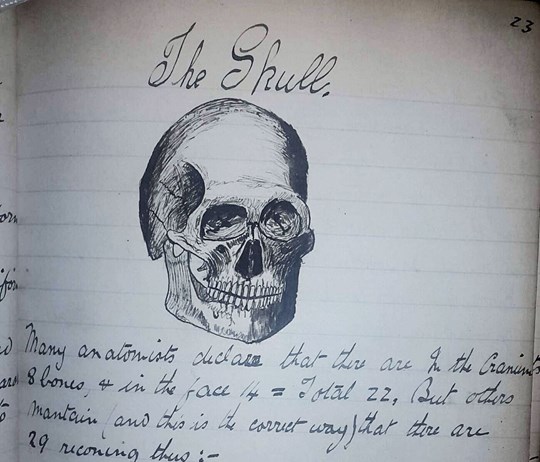 23
The Skull.
Many anatomists declare that there are In the Cranium
8 bones, & in the face 14 = Total 22, But others
Mantain (and this is the correct way) that there are
29 reconing thus :-